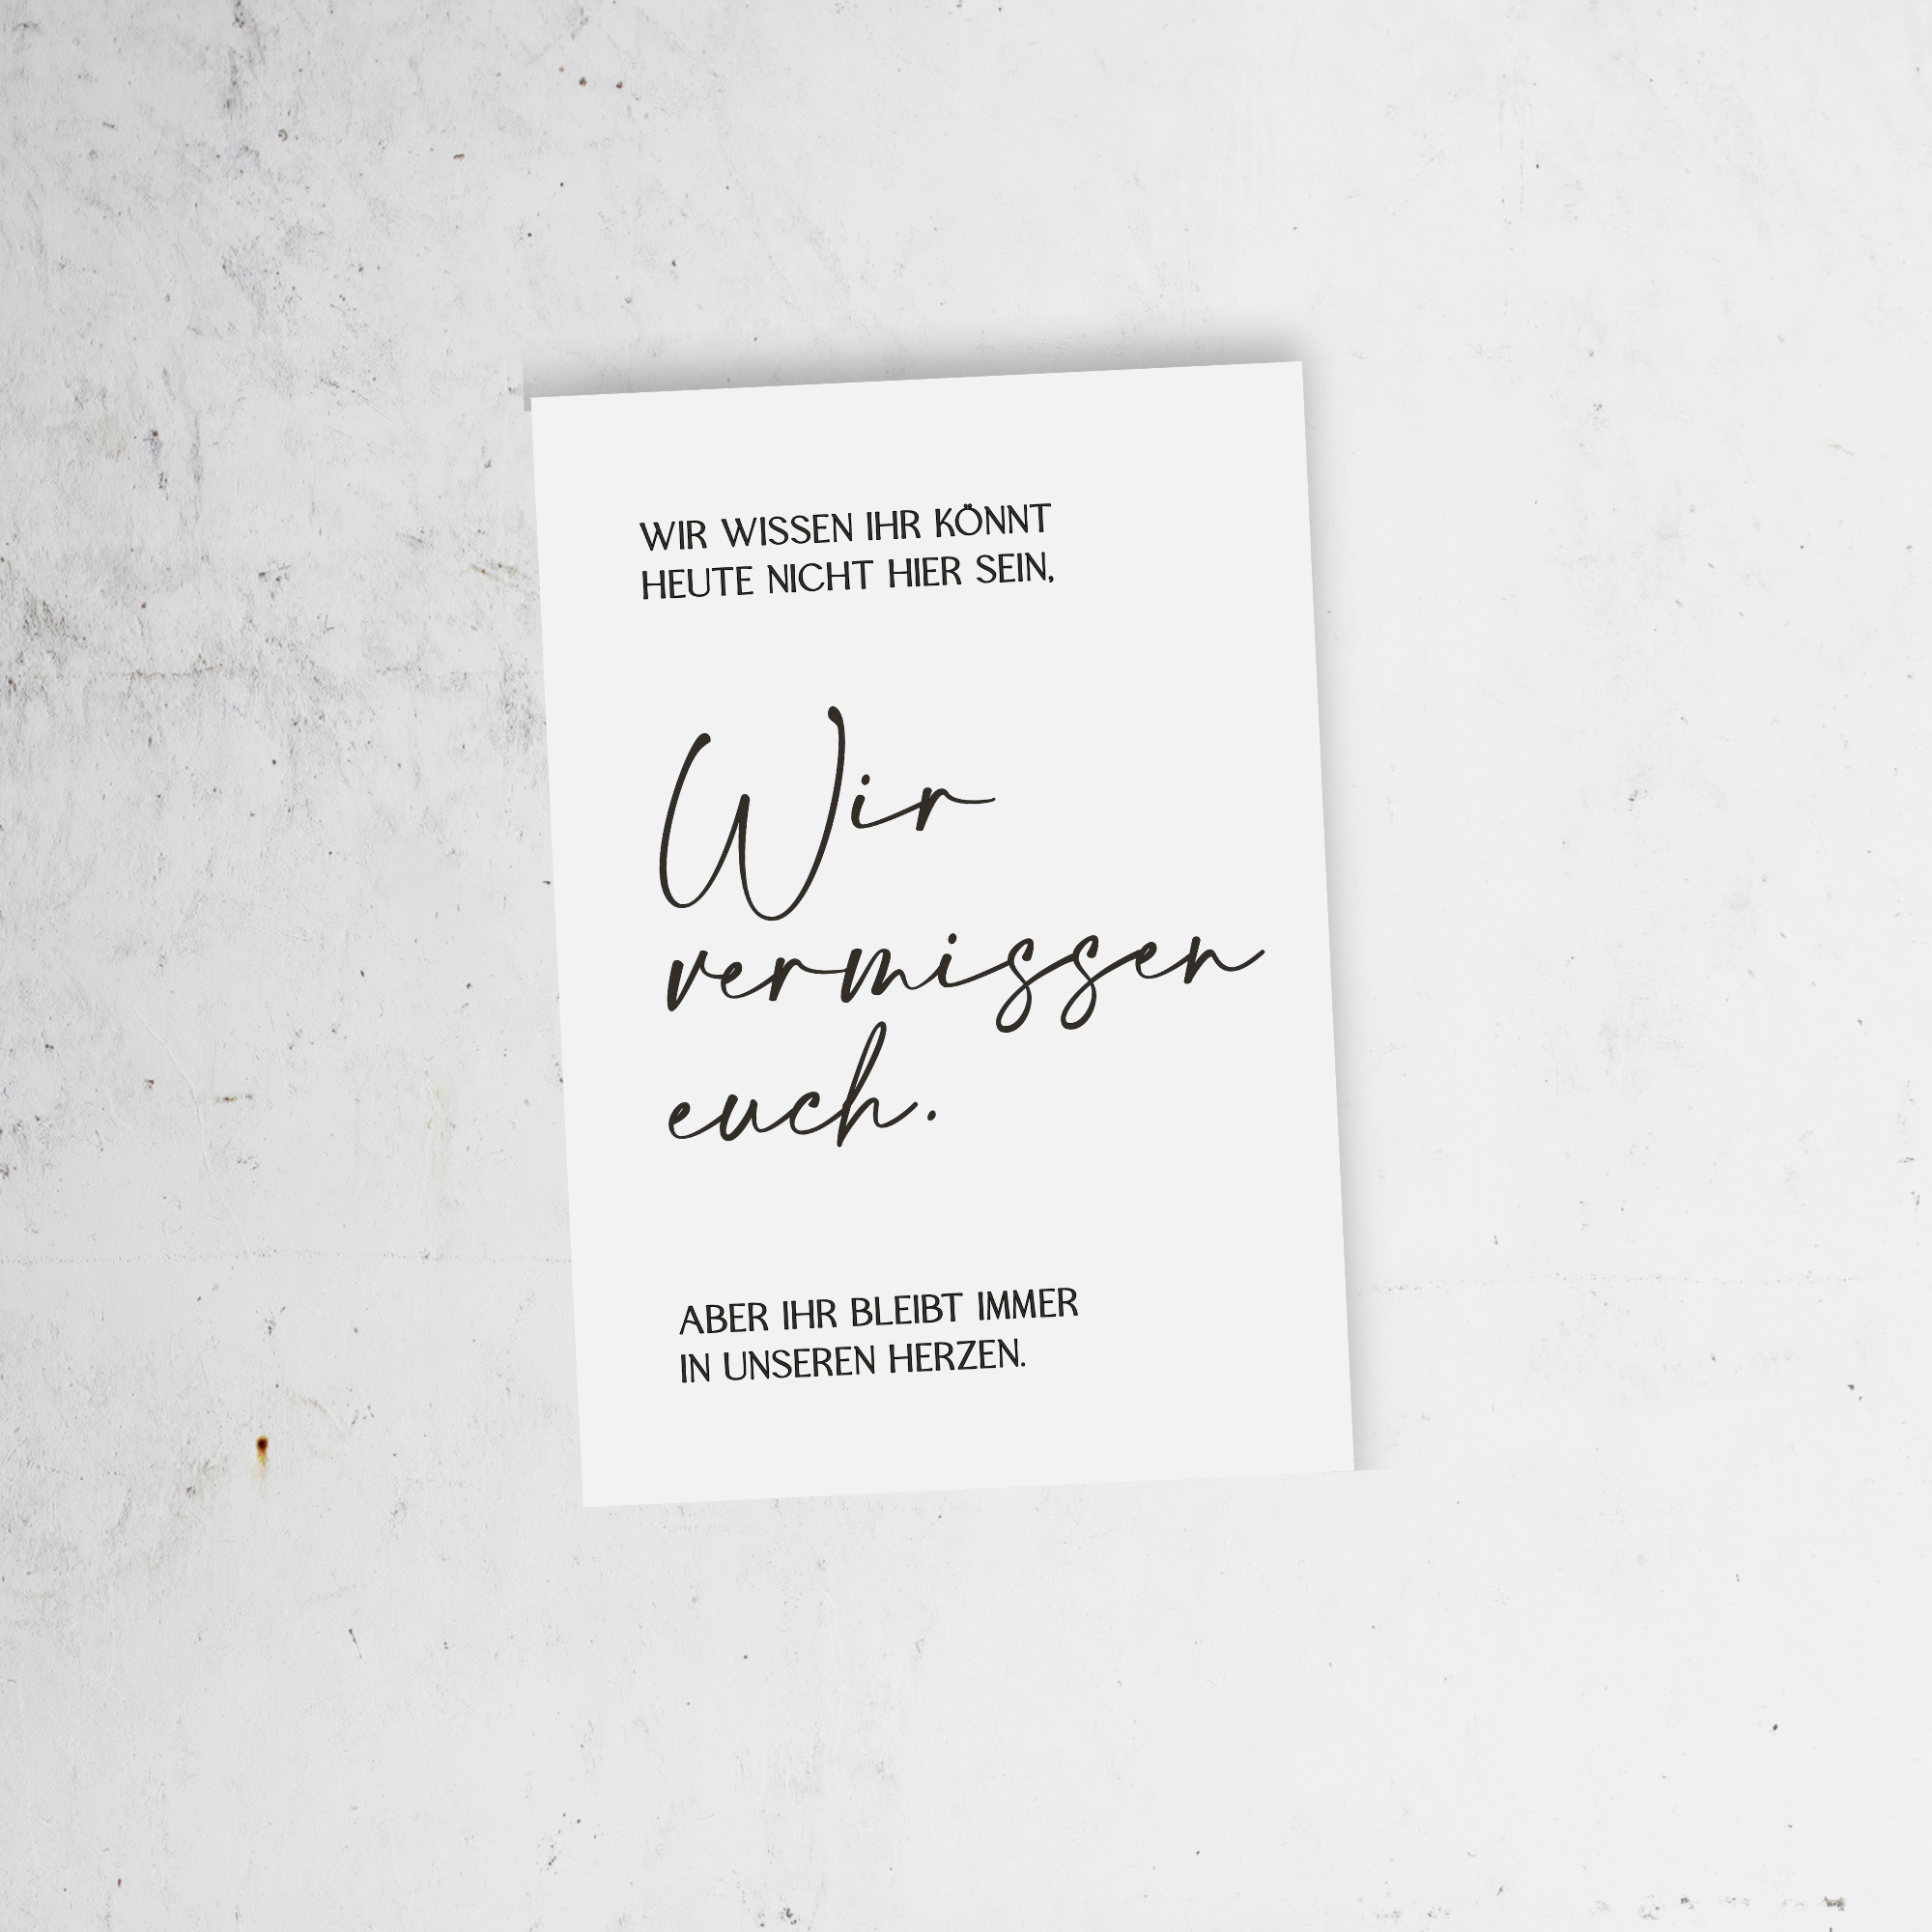 WIR WISSEN IHR KÖNNT
HEUTE NICHT HIER SEIN,
Wir
vermissen
euch.
ABER IHR BLEIBT IMMER
IN UNSEREN HERZEN.